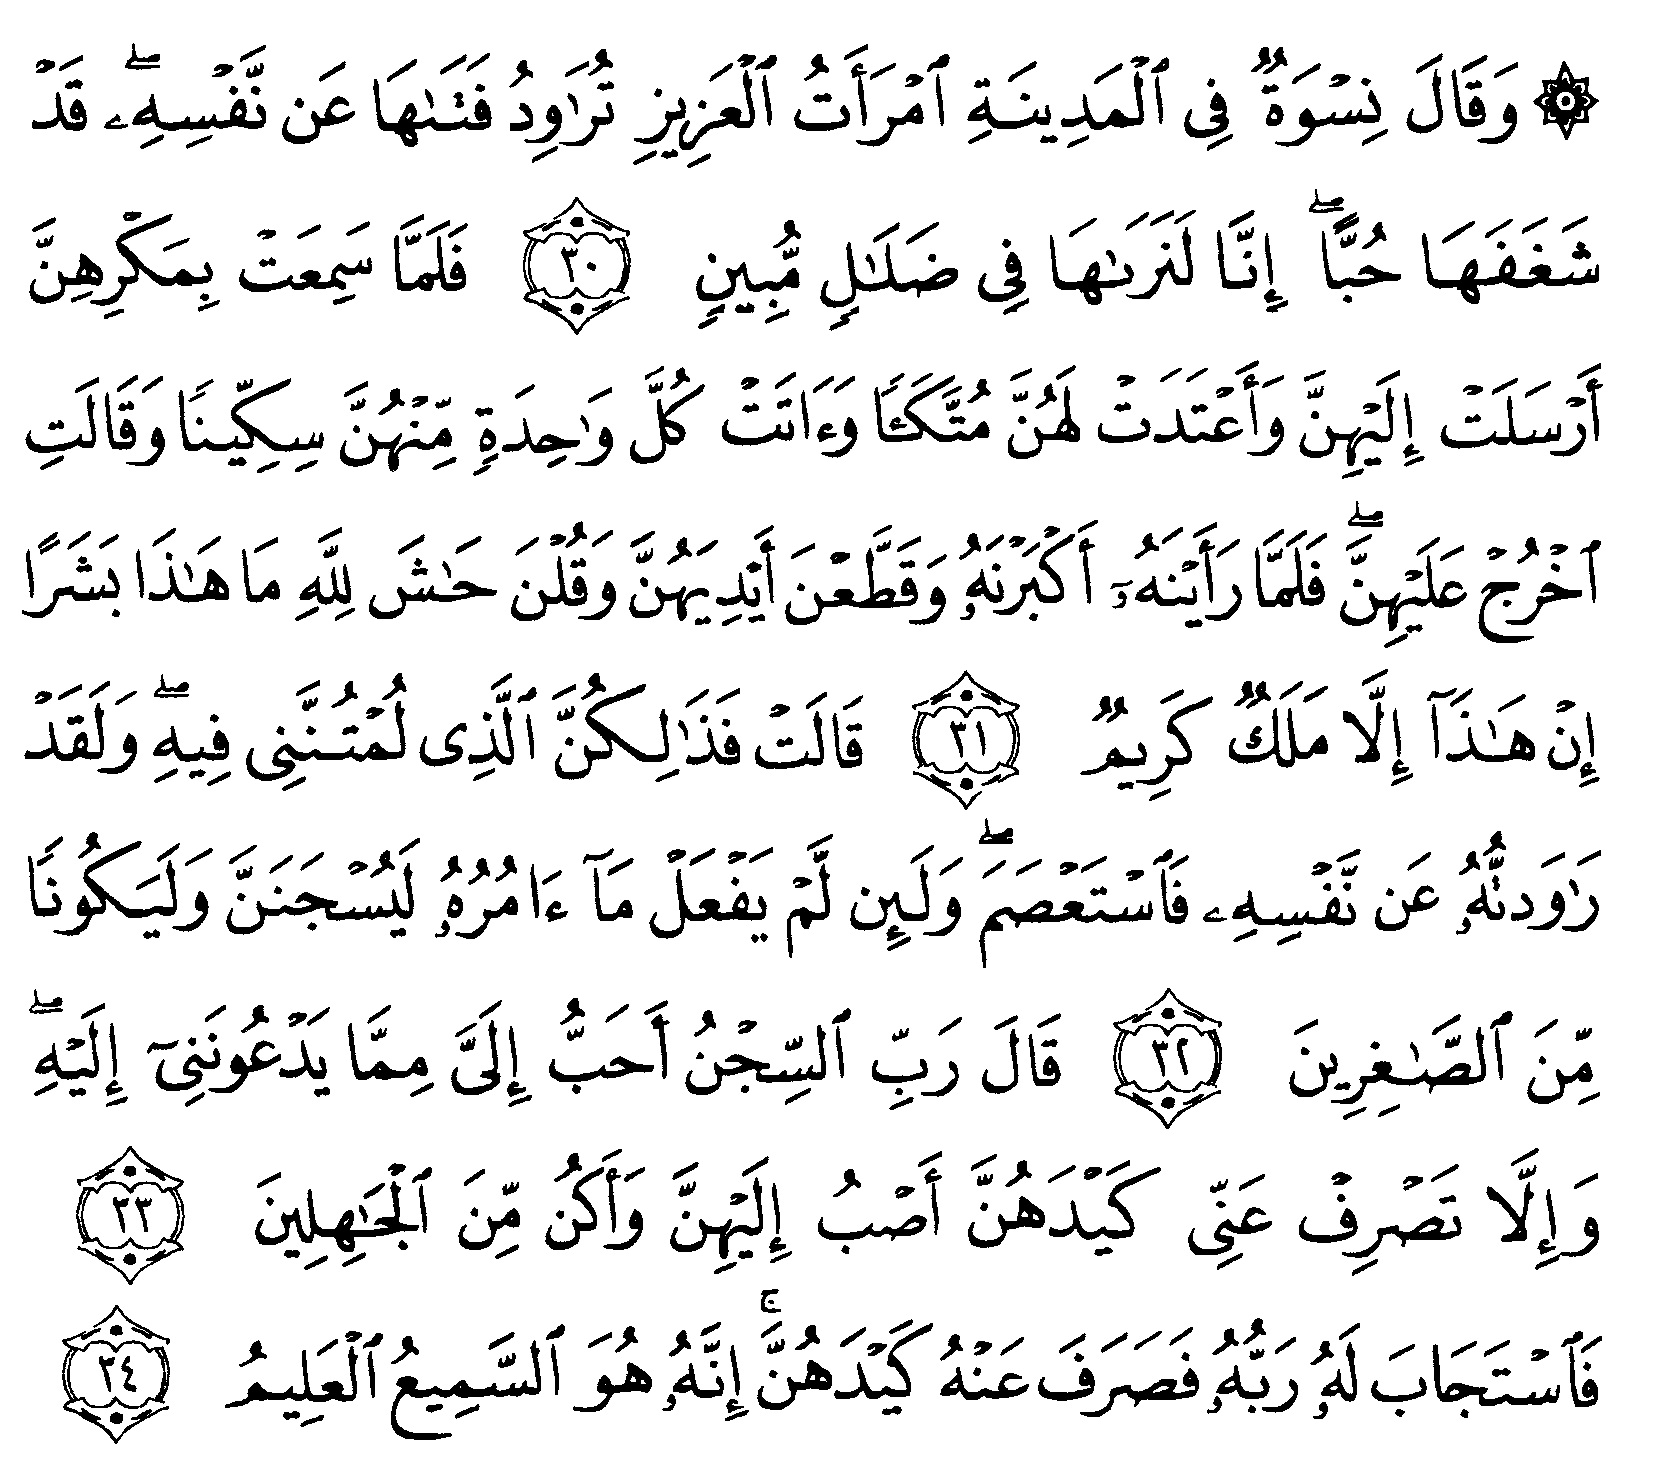 ۞ وَقَالَ نِسْوَةٌ فِى ٱلْمَدِينَةِ ٱمْرَأَتُ ٱلْعَزِيزِ تُرَٰوِدُ فَتَىٰهَا عَن نَّفْسِهِۦ ۖ قَدْ
شَغَفَهَا حُبًّا ۖ إِنَّا لَنَرَىٰهَا فِى ضَلَـٰلٍ مُّبِينٍ ٣٠ فَلَمَّا سَمِعَتْ بِمَكْرِهِنَّ
أَرْسَلَتْ إِلَيْهِنَّ وَأَعْتَدَتْ لَهُنَّ مُتَّكَـًٔا وَءَاتَتْ كُلَّ وَٰحِدَةٍ مِّنْهُنَّ سِكِّينًا وَقَالَتِ
ٱخْرُجْ عَلَيْهِنَّ ۖ فَلَمَّا رَأَيْنَهُۥٓ أَكْبَرْنَهُۥ وَقَطَّعْنَ أَيْدِيَهُنَّ وَقُلْنَ حَـٰشَ لِلَّهِ مَا هَـٰذَا بَشَرًا
إِنْ هَـٰذَآ إِلَّا مَلَكٌ كَرِيمٌ ٣١ قَالَتْ فَذَٰلِكُنَّ ٱلَّذِى لُمْتُنَّنِى فِيهِ ۖ وَلَقَدْ
رَٰوَدتُّهُۥ عَن نَّفْسِهِۦ فَٱسْتَعْصَمَ ۖ وَلَئِن لَّمْ يَفْعَلْ مَآ ءَامُرُهُۥ لَيُسْجَنَنَّ وَلَيَكُونًا
مِّنَ ٱلصَّـٰغِرِينَ ٣٢ قَالَ رَبِّ ٱلسِّجْنُ أَحَبُّ إِلَىَّ مِمَّا يَدْعُونَنِىٓ إِلَيْهِ ۖ
وَإِلَّا تَصْرِفْ عَنِّى كَيْدَهُنَّ أَصْبُ إِلَيْهِنَّ وَأَكُن مِّنَ ٱلْجَـٰهِلِينَ ٣٣
فَٱسْتَجَابَ لَهُۥ رَبُّهُۥ فَصَرَفَ عَنْهُ كَيْدَهُنَّ ۚ إِنَّهُۥ هُوَ ٱلسَّمِيعُ ٱلْعَلِيمُ ٣٤